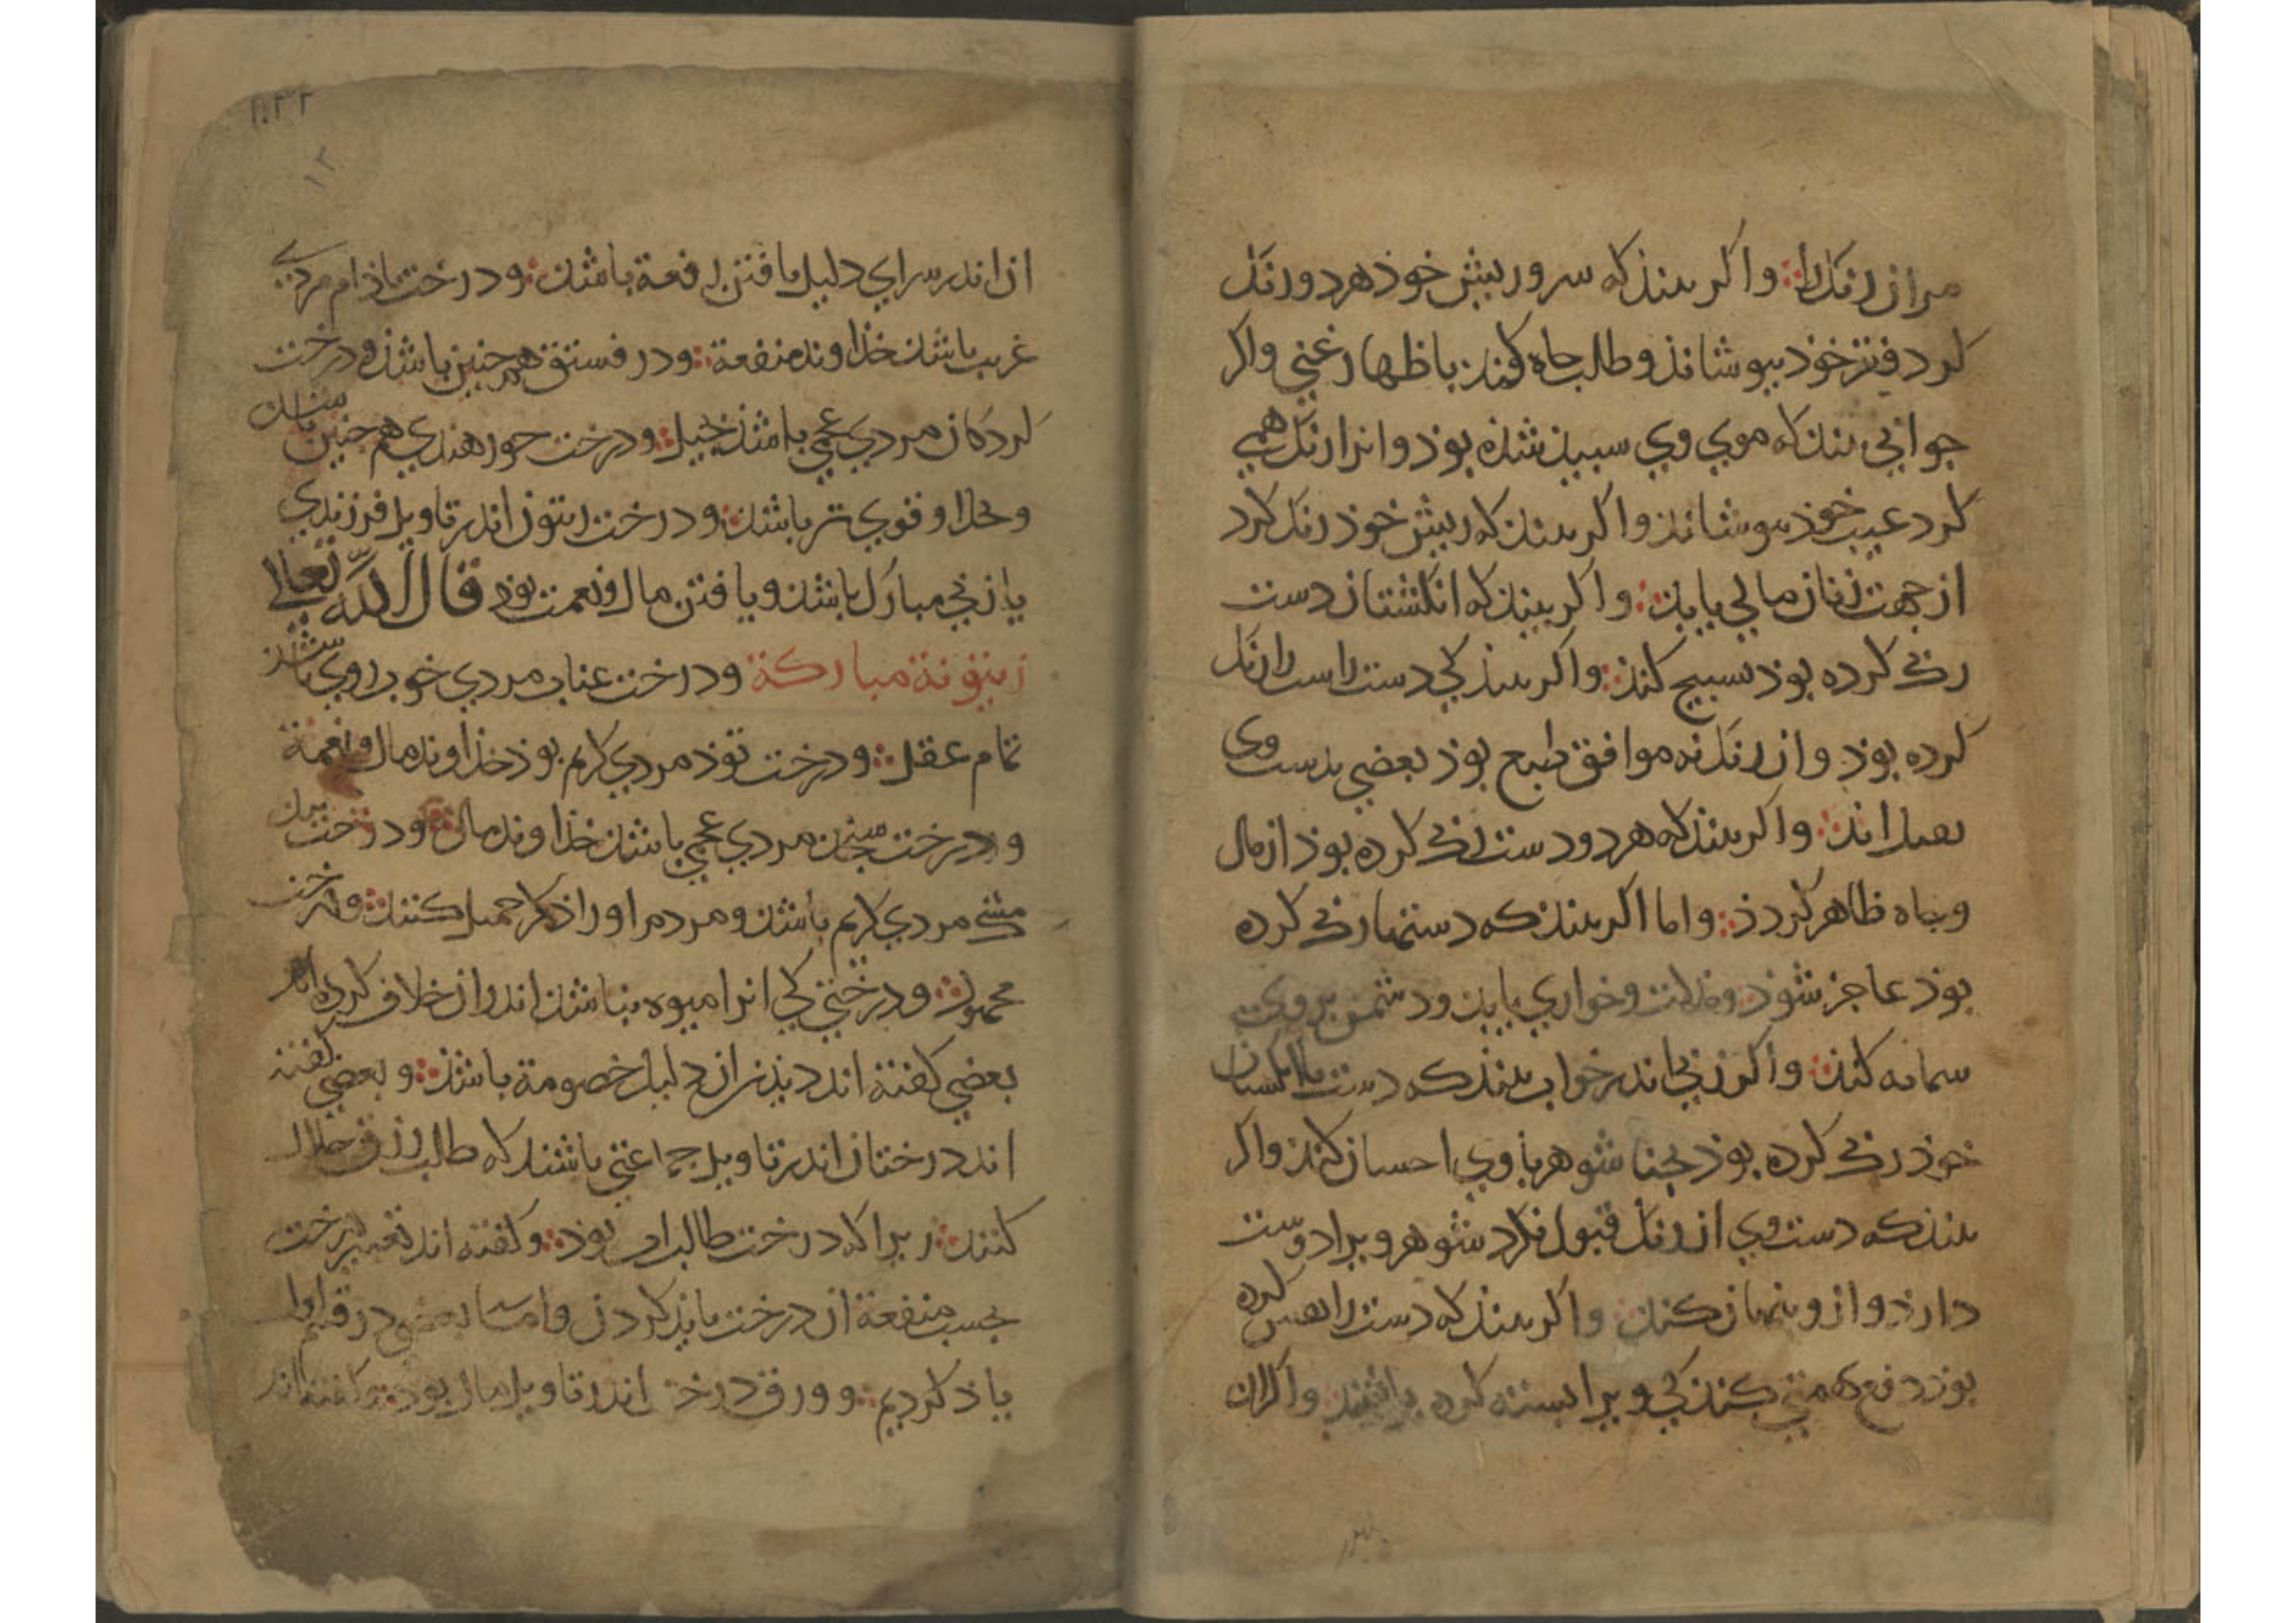 مر ان رنک را ؞ واکر بیند که سر و ریش خود هر دو رنک
کرد فقر خوذ بپوشاند و طلب جاه کند باظهار غنی واکر
جوانی بیند که موی وی سبید شذه بوذ و انرا رنک همی
کرد عیب خوذ بپوشاند واکر بیند که ریش خوذ رنک کرد
از جهت زنان مالی یابد ؞ واکر بیند که انکشتان دست
رنک کرده بوذ تسبیح کند ؞ واکر بیند کی دست راست را رنک
کرده بوذ و ان رنک نه موافق طبع بوذ بعضی بدست وی
بعمل اند ؞ واکر بیند که هر دو دست رنک کرده بوذ از مال
و جاه ظاهر کردذ ؞ واما اکر بیند که دستها رنک کرده
بوذ عاجز شوذ و مذلت و خواری یابد و دشمن بر وی
شماته کند ؞ واکر زنی اندر خواب بیند که دست با انکشتان
خوذ رنک کرده بوذ بحنا شوهر با وی احسان کند واکر
بیند که دست وی ان رنک قبول نکرد شوهر ویرا دوست
دارذ و ازو پنهان کند ؞ واکر بیند که دست را کرده
بوذ دفع کند کی ویرا بسته کرده باشند واکر ان
۱۰۲۲
۱۲
ان اندر سرای دلیل یافتن رفعة باشد ؞ و درخت باذام مردی
غریب باشد خذاوند منفعة ؞ و درفستق همچنین باشذ و درخت
کردکان مردی عجمی باشد بخیل ؞ و درخت جوز هندی هم جنین باشد
و خدا او قوی تر باشد ؞ و درخت زیتون اندر تاویل فرزندی
یا زنی مبارک باشد و یافتن مال و نعمت بوذ قال الله تعالی
زیتونة مبارکة و درخت عناب مردی خوب روی باشد
تمام عقل ؞ و درخت توذ مردی کریم بوذ خذاوند مال و نعمة
و درخت سنجد مردی عجمی باشد خذاوند مال ؞ و درخت بید
مردی کریم باشد و مردم او را ذکر جمیل کنند ؞ و درخت
محمود ؞ و درختی کی انرا میوه نباشد اندر ان خلاف کرده اند
بعضی کفته اند دیذن ان دلیل خصومة باشذ ؞ و بعضی کفته
اند درختان اندر تاویل جماعتی باشند که طالب رزق حلال
کنند ؞ زیرا که درخت طالب اب بوذ ؞ و کفته اند تعبیر درخت
بحسب منفعة ان درخت بایذ کردن و اما بعضی در قدیم
یاذ کردیم ؞ و ورق درخت اندر تاویل مال بوذ ؞ و کفته اند